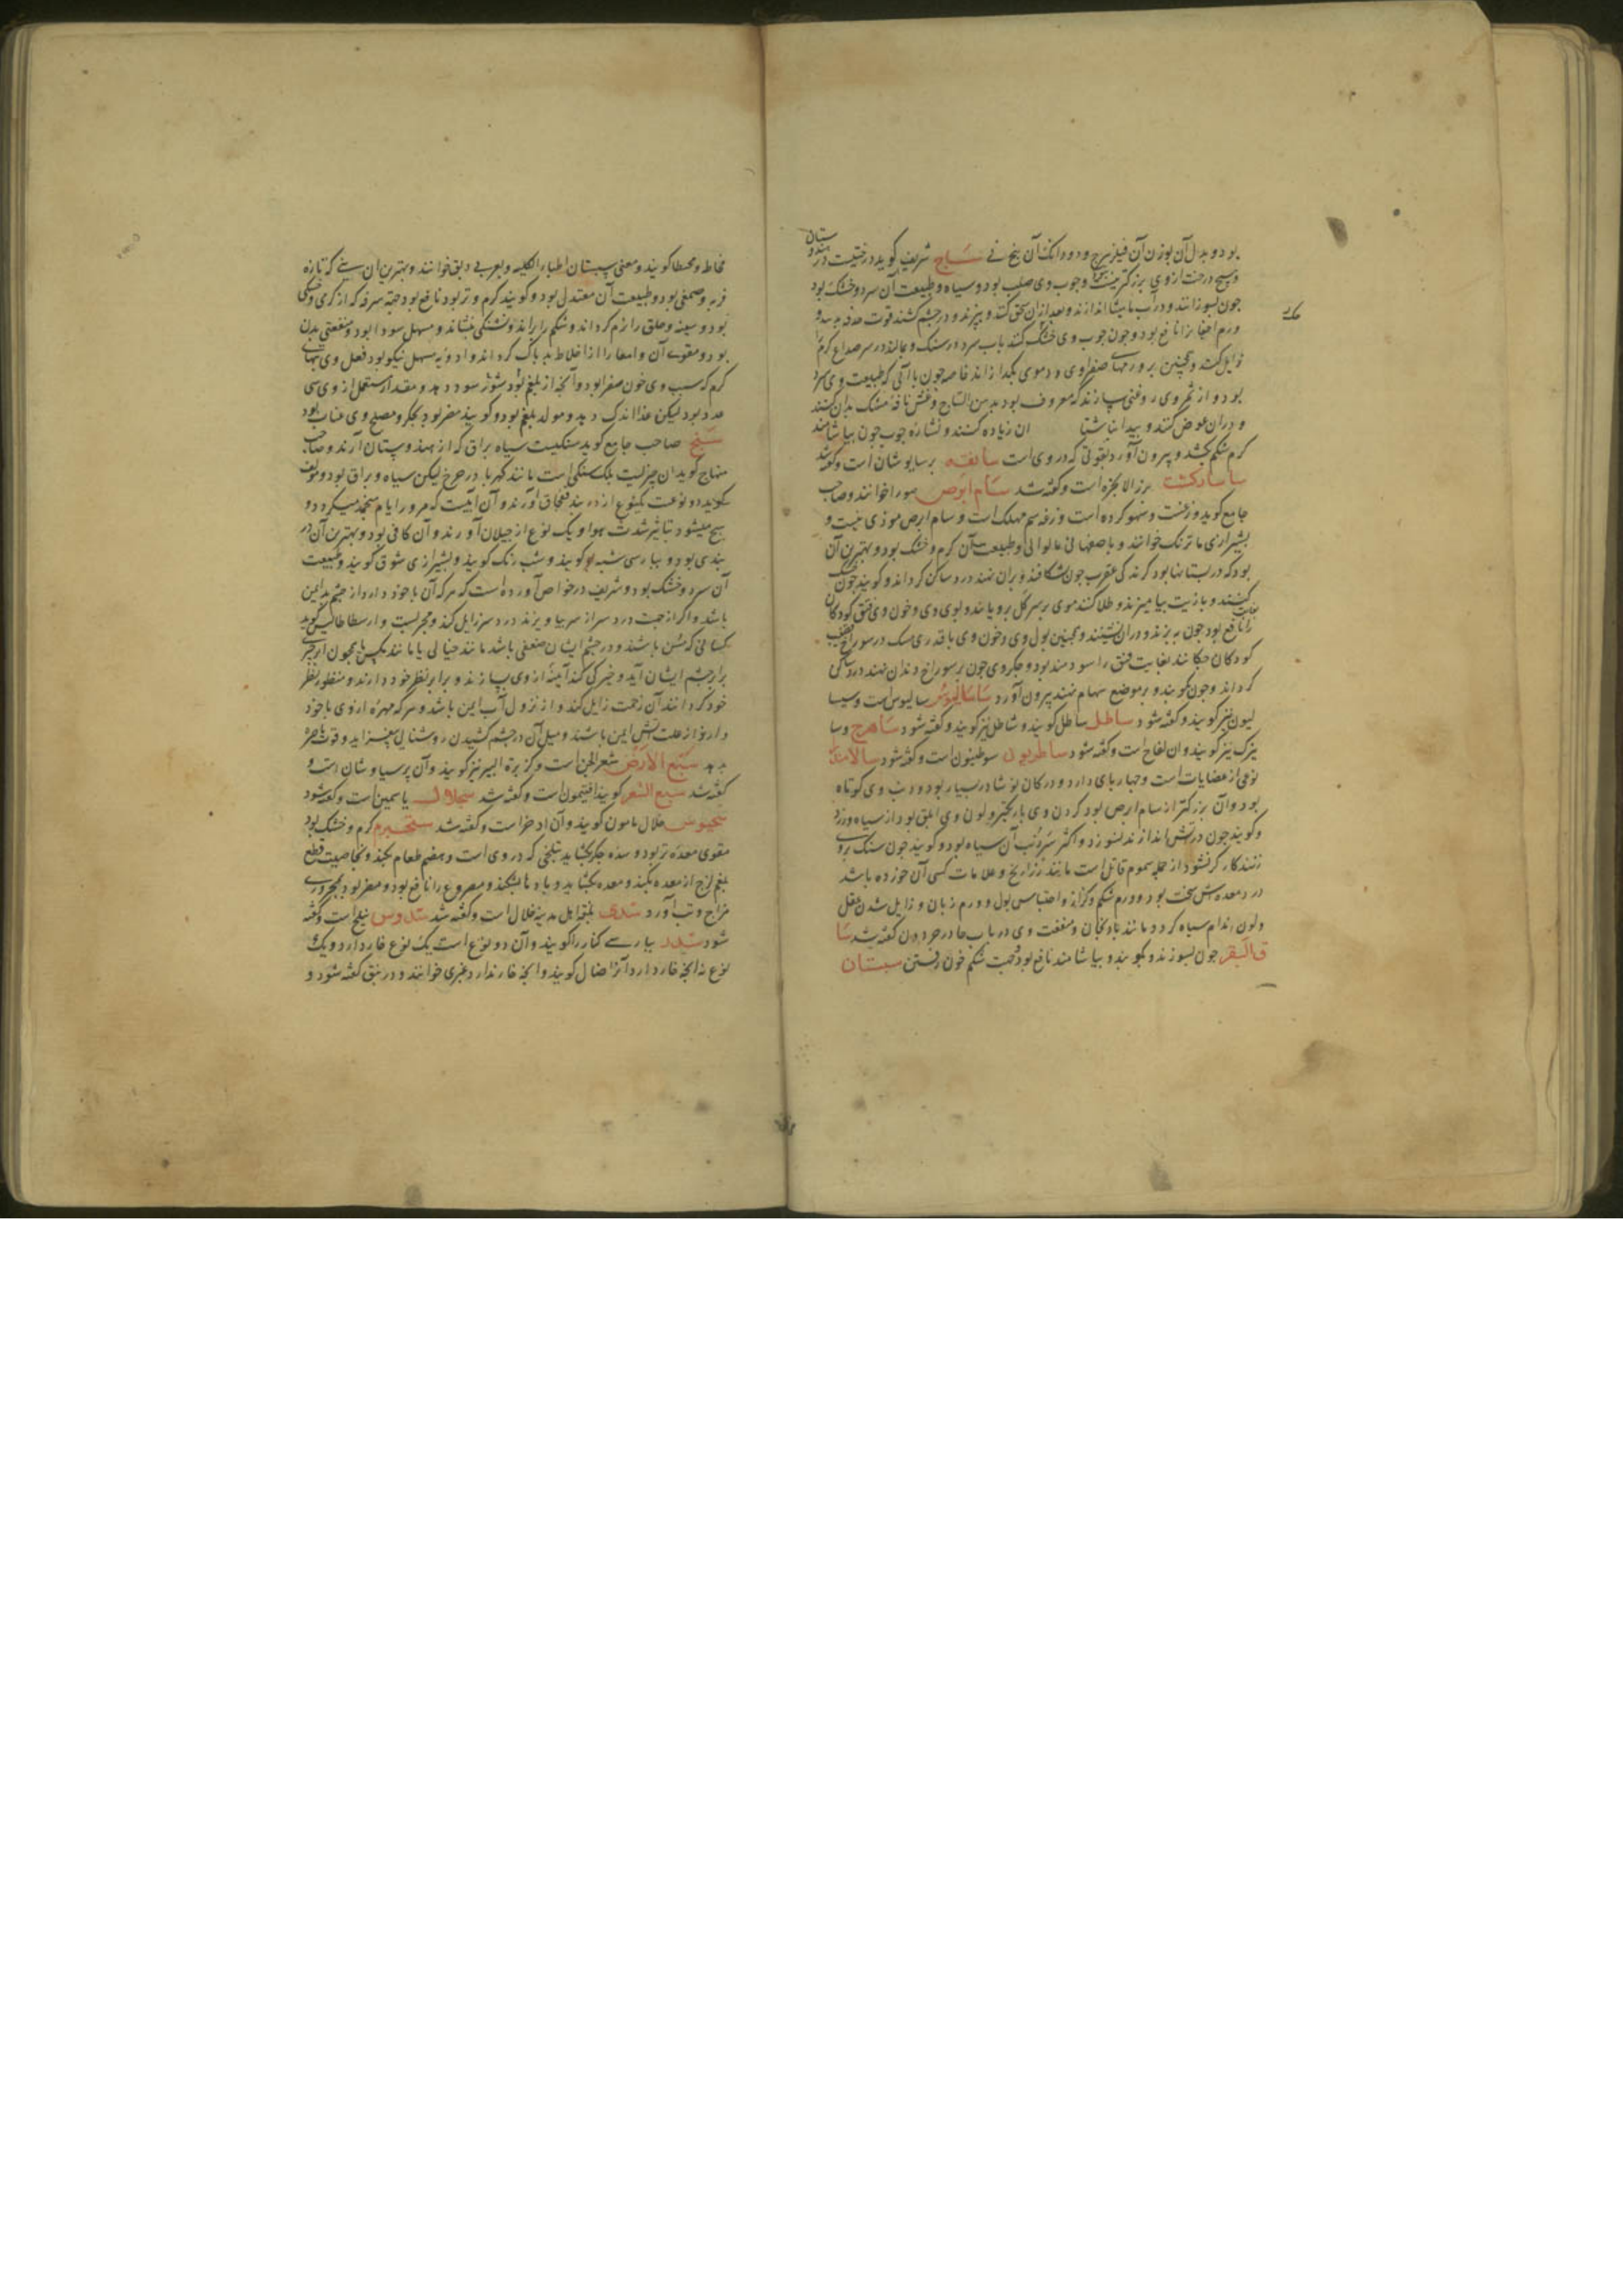 بود و بدل آن بوزن آن فیلزهرج و دو دانک آن بیخ نی ساج شریف کوید درختیست در هندوستان
و هیچ درخت از وی بزرکتر نیست و چوب وی صلب بود و سیاه و طبیعت آن سرد و خشک بود
جون بسوزانند و در آب مامیثا اندازند و بعد از ان سحق کنند و بپزند و در جشم کشند قوت حدقه بدهد و
ورم اجفان را نافع بود و جون جوب وی خشک کنند باب سرد در سنک و بمالند در سر صداع کرم را
زایل کند و همچنین بر ورمهای صفراوی و دموی بکدازاند خاصه جون با آبی که طبیعت وی سرد
بود و از ثمر وی روغنی سازند که معروف بود بدهن الساج و غش نافه مشک بدان کنند
و در ان عوض کنند و بیدا نباشد تا ان زیاده کنند و نشاره جوب جون بیاشامند
کرم شکم بکشد و بیرون آورد بقوتی که در وی است سابقه برسیاوشان است و کفته شد
ساسارکشت بزر الانجره است و کفته شد سام ابرص سورا خوانند و صاحب
جامع کوید وزغست و سهو کرده است وزغه سم مهلک است و سام ابرص موذی نیست و
بشیرازی ماترنک خوانند و باصفهانی مالوالی و طبیعت آن کرم و خشک بود و بهترین آن
بود که در بستانها بود کزندکی عقرب جون بشکافند و بران نهند درد ساکن کرداند و کویند جون خشک
کنند و با زیت بیامیزند و طلا کنند موی بر سر کل برویاند و بول وی و خون وی فتق کودکان
را بغایت نافع بود جون بپزند و دران نشینند و همچنین بول وی و خون وی با قدری مسک در سوراخ قضیب
کودکان جکانند بغایت فتق را سودمند بود و جکر وی جون بر سوراخ دندان نهند درد ساکن
کرداند و جون بکوبند و بر موضع سهام نهند بیرون آورد ساسالیوس سالیوس است و سیسا
لیون نیز کویند و کفته شود ساطل ساطل کویند و شاطل نیز کویند و کفته شود ساهرج وسا
بیزک نیز کویند و ان لفاح است و کفته شود ساطریون سوطینون است و کفته شود سالامندرا
نوعی از عضایات است و جهار پای دارد و در کان نوشادر بسیار بود و دنب وی کوتاه
بود و آن بزرکتر از سام ابرص بود کردن وی باریکتر و لون وی ابلق بود از سیاه و زرد
و کویند جون در آتش اندازند نسوزد و اکثر سر و دنب آن سیاه بود و کویند جون سنک بروی
زنند کارکر نشود از جمله سموم قاتل است مانند زراریح و علامات کسی آن خورده باشد
درد معده سخت بود و ورم شکم و کزاز و احتباس بول و ورم زبان و زایل شدن عقل
و لون اندام سیاه کردد مانند بادنجان و منفعت وی در باب حا در حردون کفته شد سا
ق البقر جون بسوزند و بکوبند و بیاشامند نافع بود جهت شکم خون رفتن سبستان
مخاطه و مخیطا کویند و معنی سبستان اطباء الکلبه و بعربی دبق خوانند و بهترین ان بود که تازه
فربه و صمغی بود و طبیعت آن معتدل بود و کویند کرم و تر بود نافع بود جهة سرفه که از کرمی و خشکی
بود و سینه و حلق را نرم کرداند و شکم را براند و تشنکی بنشاند و مسهل سودا بود و منفعتی بدن
بود و مقوی آن و امعا را از اخلاط بد پاک کرداند و ادویه مسهل نیکو بود فعل وی تبهای
کرم که سبب وی خون صفرا بود و آنجه از بلغم بود شور سود دهد و مقدار مستعمل از وی سی
عدد بود لیکن غذا اندک دهد و مولد بلغم بود و کویند مضر بود بجکر و مصلح وی عناب بود
سبج صاحب جامع کوید سنکیست سیاه براق که از هندوستان آرند و صاحب
منهاج کوید ان جزلیت بلک سنکی است مانند کهربا در جرخ لیکن سیاه و براق بود و مولف
کوید دو نوعست یکنوع از دربند قفجاق آورند و آن آبیست که مرور ایام منجمد میکردد و
سبج میشود بتاثیر شدت هوا و یک نوع از جیلان آورند و آن کانی بود و بهترین آن در
بندی بود و بپارسی شبه کویند و شب رنک کویند و بشیرازی شوق کویند و طبیعت
آن سرد و خشک بود و شریف در خواص آورده است که هرکه آن باخود دارد از جشم بد ایمن
باشد و اکر از جهت درد سر از سر بیاویزند درد سر زایل کند و مجربست و ارسطاطالیس کوید
کسانی که مسن باشند و در جشم ایشان ضعفی باشد مانند خیالی یا مانند مکس یا همجون ابر جیزی
برابر جشم ایشان آید و خیرکی کند آینه از وی بسازند و برابر نظر خود دارند و منظور نظر
خود کردانند آن زحمت زایل کند و از نزول آب ایمن باشد و هر که مهره از وی باخود
دارد از علت آتش ایمن باشند و میل آن در جشم کشیدن روشنایی بیفزاید و قوت باصره
بدهد سبع الارض شعر الجن است و کزبرة البیر نیز کویند و آن برسیاوشان است و
کفته شد سبع الشعر کویند افتیمون است و کفته شد سجلاط یاسمین است و کفته شود
سخیوس خلال مامون کویند و آن اذخر است و کفته شد سخبرم کرم و خشک بود
مقوی معده تر بود و سده جکر بکشاید بتلخی که در وی است و هضم طعام بکند و بخاصیت قطع
بلغم لزج از معده بکند و معده بکشاید و بادها بشکند و مصروع را نافع بود و مضر بود بمحروری
مزاج و تب آورد سدی بلغة اهل مدینه خلال است و کفته شد سدوس نیلج است و کفته
شود سدر بپارسی کنار را کویند و آن دو نوع است یک نوع خار دارد و یک
نوع نه آنجه خار دارد آنرا ضال کویند و آنجه خار ندارد عبری خوانند و در نبق کفته شود و